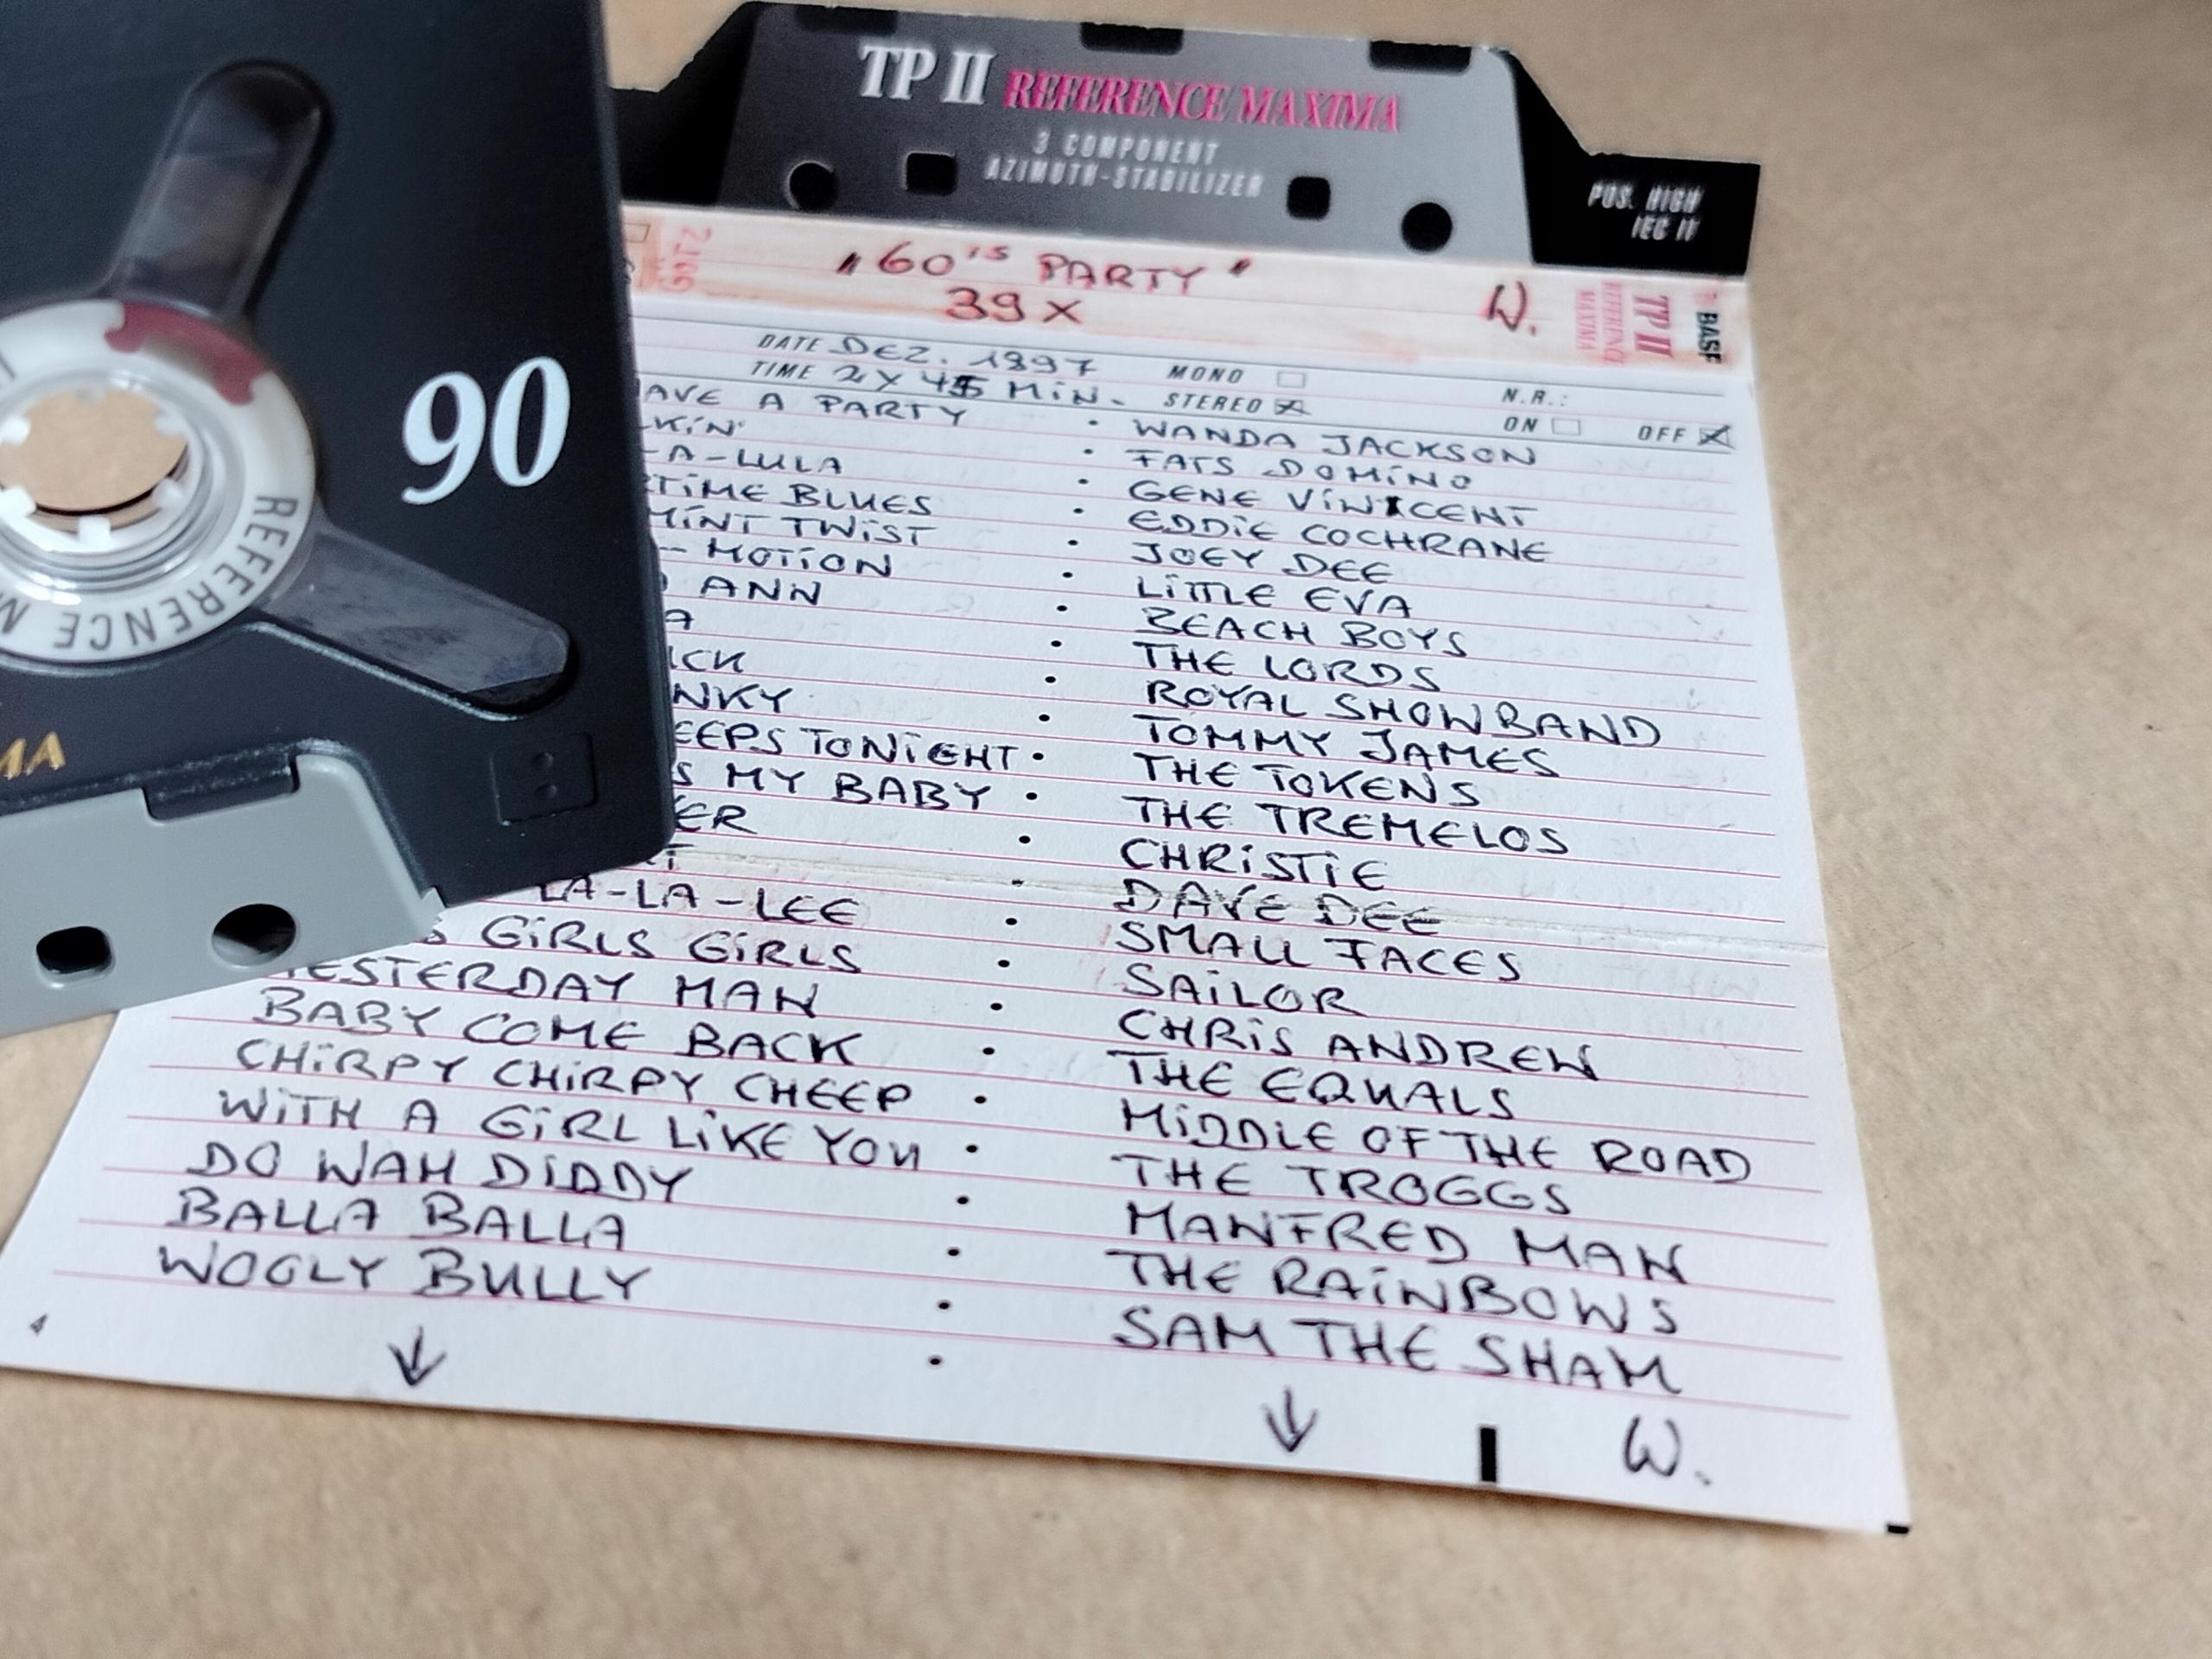 TP II REFERENCE MAXIMA
3 COMPONENT
AZIMUTH-STABILIZER
POS. HIGH
IEC II
"60'S PARTY"
39 X
W.
TP II
REFERENCE
MAXIMA
BASF
DATE DEZ. 1997
TIME 2 X 45 MIN.
MONO
STEREO
N.R.:
ON OFF
AVE A PARTY · WANDA JACKSON
LKIN' · FATS DOMINO
-A-LULA · GENE VINCENT
TIME BLUES · EDDIE COCHRANE
MINT TWIST · JOEY DEE
- MOTION · LITTLE EVA
ANN · BEACH BOYS
A · THE LORDS
ICK · ROYAL SHOWBAND
NKY · TOMMY JAMES
EEPS TONIGHT · THE TOKENS
S MY BABY · THE TREMELOS
ER · CHRISTIE
T · DAVE DEE
LA-LA-LEE · SMALL FACES
S GIRLS GIRLS · SAILOR
YESTERDAY MAN · CHRIS ANDREW
BABY COME BACK · THE EQUALS
CHIRPY CHIRPY CHEEP · MIDDLE OF THE ROAD
WITH A GIRL LIKE YOU · THE TROGGS
DO WAH DIDDY · MANFRED MAN
BALLA BALLA · THE RAINBOWS
WOOLY BULLY · SAM THE SHAM
4
W.
90
REFERENCE M
MA